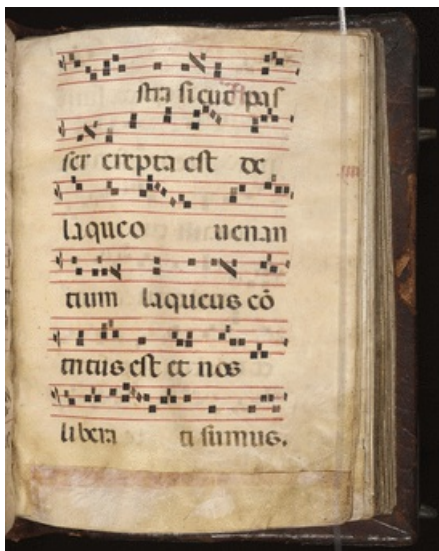 stra sicut pas
ser erepta est de
laqueo uenan
tium laqueus cō
tritus est et nos
libera ti sumus.